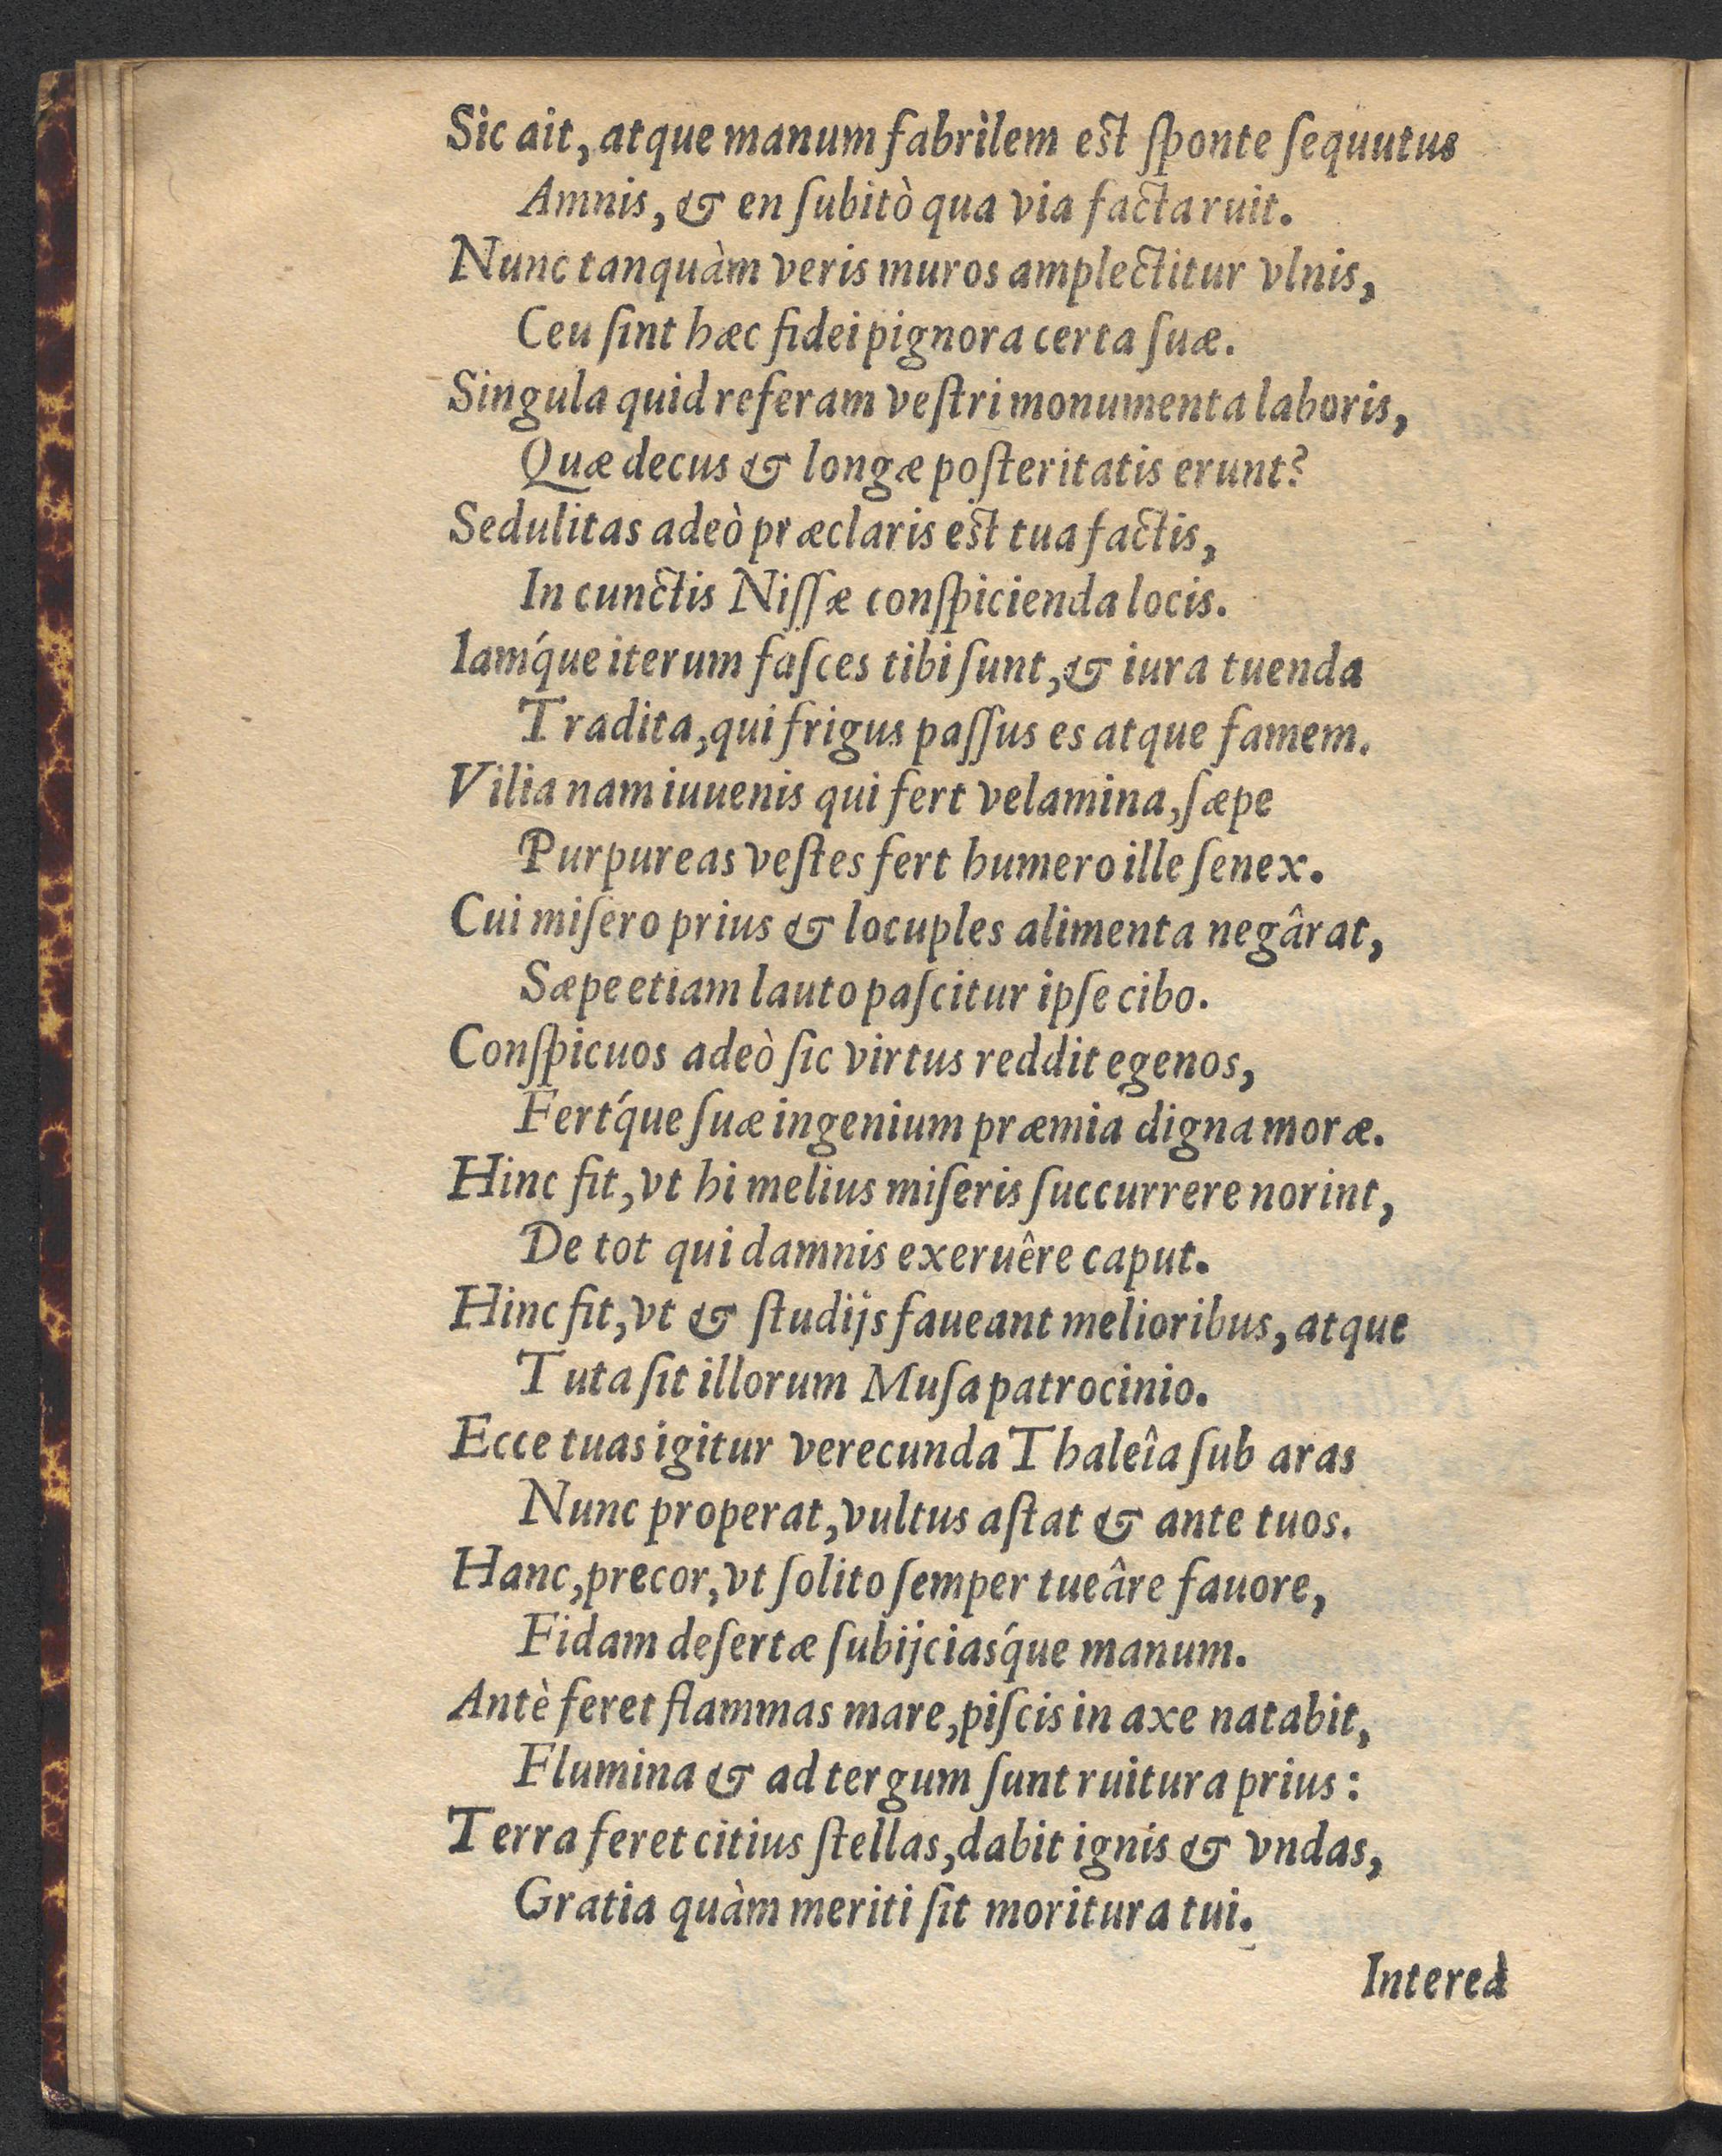 Sic ait, atque manum fabrilem est ſponte ſequutus
Amnis, & en ſubitò qua via facta ruit.
Nunc tanquàm veris muros amplectitur vlnis,
Ceu ſint hæc fidei pignora certa ſuæ.
Singula quid referam veſtri monumenta laboris,
Quæ decus & longæ poſteritatis erunt?
Sedulitas adeò præclaris est tua factis,
In cunctis Niſſæ conſpicienda locis.
Iamq́ue iterum faſces tibi ſunt, & iura tuenda
Tradita, qui frigus paſſus es atque famem.
Vilia nam iuuenis qui fert velamina, ſæpe
Purpureas veſtes fert humero ille ſenex.
Cui miſero prius & locuples alimenta negârat,
Sæpe etiam lauto paſcitur ipſe cibo.
Conſpicuos adeò ſic virtus reddit egenos,
Fertq́ue ſuæ ingenium præmia digna moræ.
Hinc fit, vt hi melius miſeris ſuccurrere norint,
De tot qui damnis exeruêre caput.
Hinc fit, vt & ſtudijs faueant melioribus, atque
Tuta ſit illorum Muſa patrocinio.
Ecce tuas igitur verecunda Thaleîa ſub aras
Nunc properat, vultus aſtat & ante tuos.
Hanc, precor, vt ſolito ſemper tueâre fauore,
Fidam deſertæ ſubijciasq́ue manum.
Antè feret flammas mare, piſcis in axe natabit,
Flumina & ad tergum ſunt ruitura prius:
Terra feret citius ſtellas, dabit ignis & vndas,
Gratia quàm meriti ſit moritura tui.
Intereà